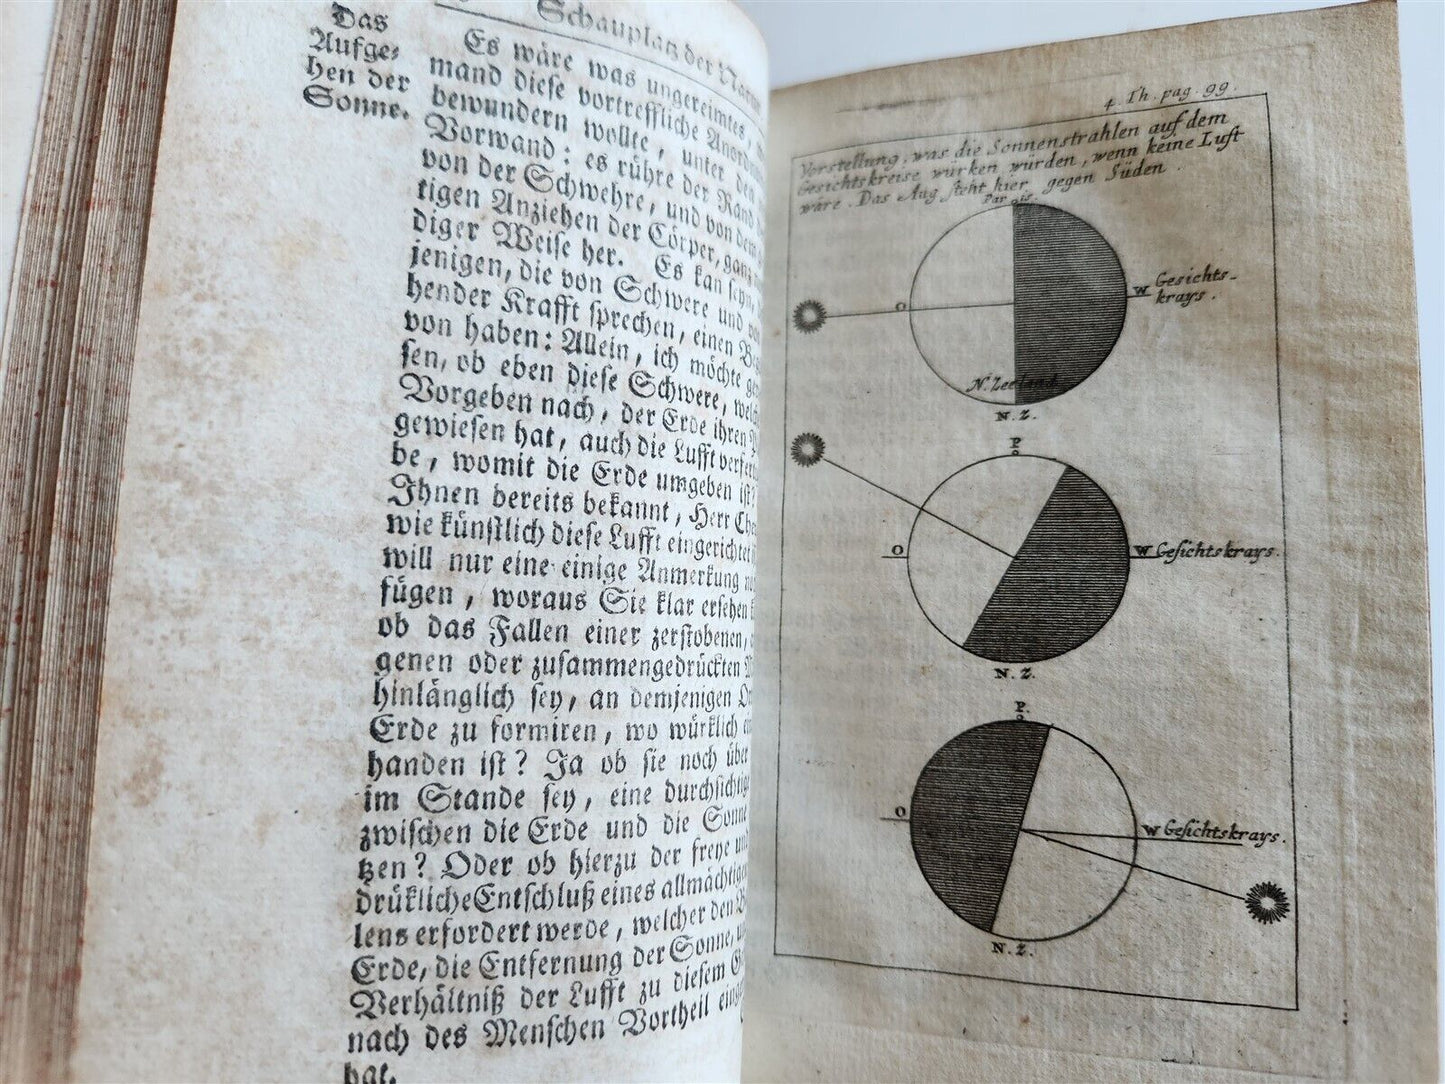 Schauplatz der Natur
Das
Aufge-
hen der
Sonne.
Es wäre was ungereimtes,
mand diese vortreffliche Anord
bewundern wollte, unter den
Vorwand: es rühre der Rand
von der Schwehre, und von dem
tigen Anziehen der Cörper, ganz
diger Weise her. Es kan seyn,
jenigen, die von Schwere und
hender Krafft sprechen, einen
von haben: Allein, ich möchte
sen, ob eben diese Schwere,
Vorgeben nach, der Erde ihren
gewiesen hat, auch die Lufft
be, womit die Erde umgeben ist?
Ihnen bereits bekannt, Herr
wie künstlich diese Lufft eingerichtet
will nur eine einige Anmerkung
fügen, woraus Sie klar ersehen
ob das Fallen einer zerstobenen,
genen oder zusammengedrückten
hinlänglich sey, an demjenigen
Erde zu formiren, wo würklich
handen ist? Ja ob sie noch über
im Stande sey, eine durchsichtige
zwischen die Erde und die Sonne
tzen? Oder ob hierzu der freye und
drükliche Entschluß eines allmächtigen
lens erfordert werde, welcher den
Erde, die Entfernung der Sonne,
Verhältniß der Lufft zu diesem
nach des Menschen Vortheil
hat.
4. Th. pag. 99.
Vorstellung, was die Sonnenstrahlen auf dem
Gesichtskreise würken würden, wenn keine Luft
wäre. Das Aug steht hier gegen Süden.
Paris.
O
W Gesichts-
krays.
N. Zeeland
N. Z.
P.
O
W Gesichtskrays.
N. Z.
P.
O
W Gesichtskrays.
N. Z.